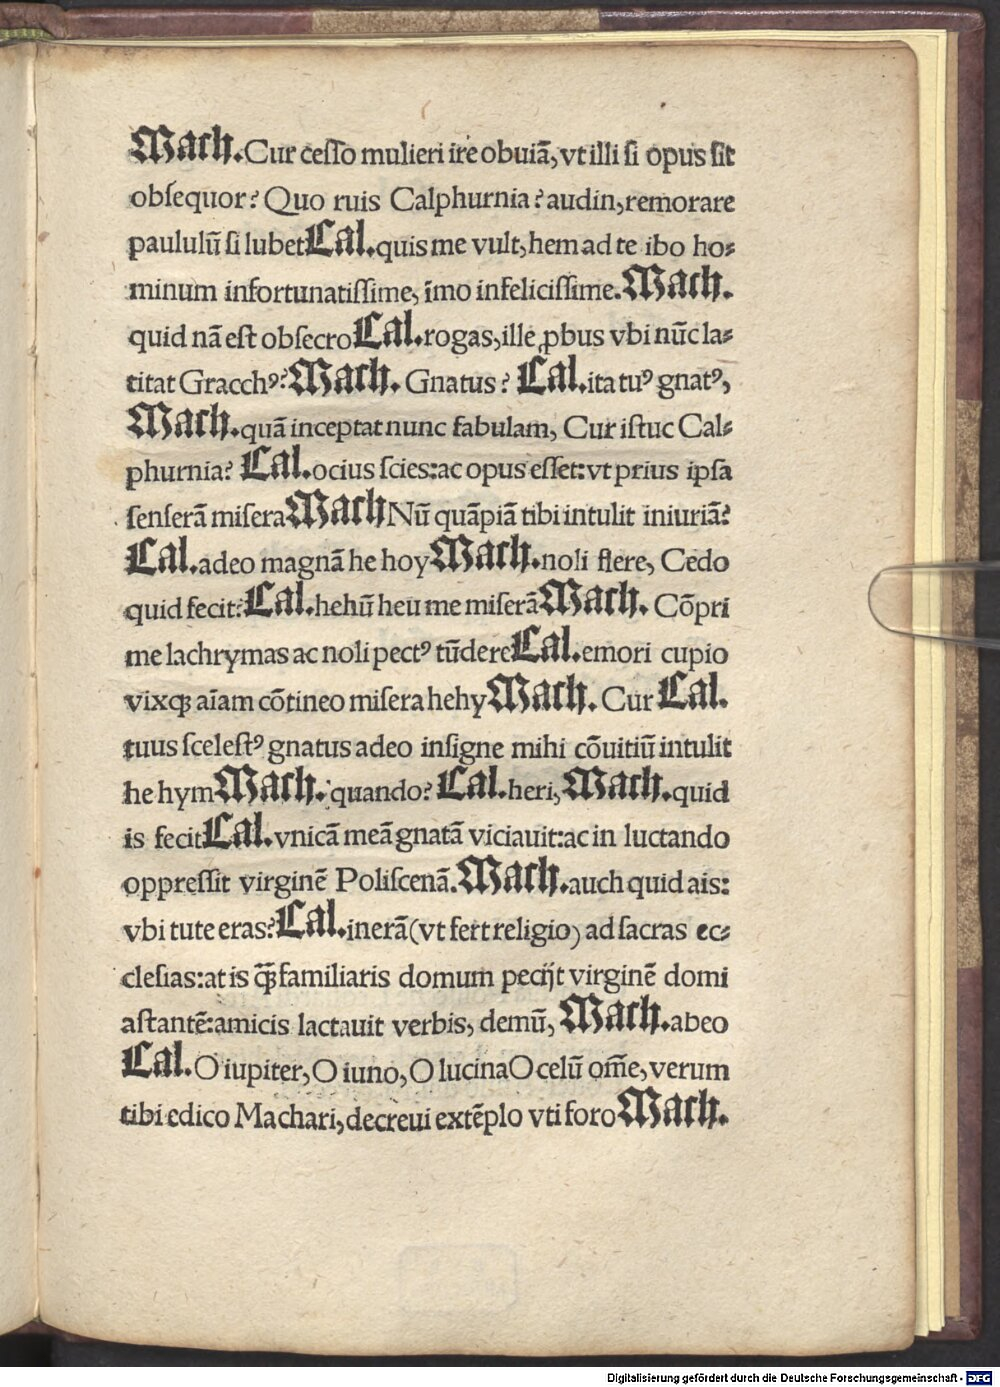 Mach.Cur ceſſo mulieri ire obuiā, vt illi ſi opus ſit
obſequor? Quo ruis Calphurnia? audin, remorare
paululū ſi lubet Cal. quis me vult, hem ad te ibo ho⸗
minum infortunatiſſime, īmo infeliciſſime. Mach.
quid nā eſt obſecro Cal. rogas, ille ꝓbus vbi nūc la⸗
titat Gracchꝰ? Mach. Gnatus? Cal. ita tuꝰ gnatꝰ,
Mach. quā inceptat nunc fabulam, Cur iſtuc Cal⸗
phurnia? Cal. ocius ſcies: ac opus eſſet: vt prius ipſa
ſenſerā miſera Mach Nū quāpiā tibi intulit iniuriā?
Cal. adeo magnā he hoy Mach. noli flere, Cedo
quid fecit? Cal. hehū heu me miſerā Mach. Cōpri
me lachrymas ac noli pectꝰ tūdere Cal. emori cupio
vixqꝫ aīam cōtineo miſera hehy Mach. Cur Cal.
tuus ſceleſtꝰ gnatus adeo inſigne mihi cōuitiū intulit
he hym Mach. quando? Cal. heri, Mach. quid
is fecit Cal. vnicā meā gnatā viciauit: ac in luctando
oppreſſit virginē Poliſcenā. Mach. auch quid ais:
vbi tute eras? Cal. inerā (vt fert religio) ad ſacras ec⸗
cleſias: at is ꝙ̄ familiaris domum pecijt virginē domi
aſtantē: amicis lactauit verbis, demū, Mach. abeo
Cal. O iupiter, O iuno, O lucina O celū om̄e, verum
tibi edico Machari, decreui extēplo vti foro Mach.
Digitalisierung gefördert durch die Deutsche Forschungsgemeinschaft - DFG